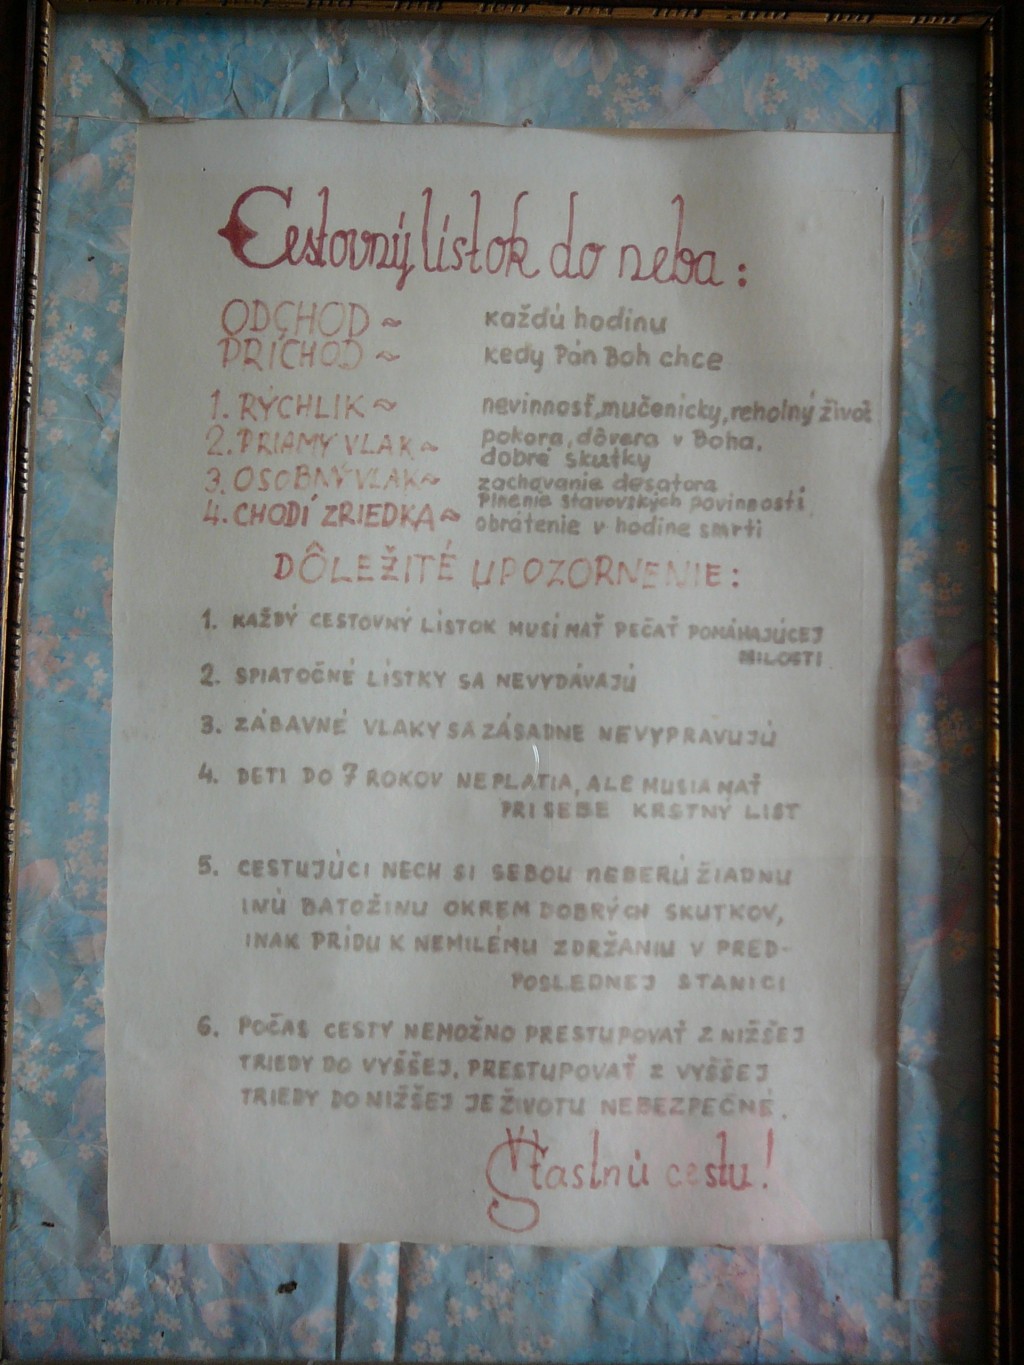 Cestovný lístok do neba:
ODCHOD ~ každú hodinu
PRÍCHOD ~ kedy Pán Boh chce
1. RÝCHLIK ~ nevinnosť, mučenícky, reholný život
2. PRIAMY VLAK ~ pokora, dôvera v Boha,
dobré skutky
3. OSOBNÝ VLAK ~ zachovanie desatora
Plnenie stavovských povinností
4. CHODÍ ZRIEDKA ~ obrátenie v hodine smrti
DÔLEŽITÉ UPOZORNENIE:
1. KAŽDÝ CESTOVNÝ LÍSTOK MUSÍ MAŤ PEČAŤ POMÁHAJÚCEJ
MILOSTI
2. SPIATOČNÉ LÍSTKY SA NEVYDÁVAJÚ
3. ZÁBAVNÉ VLAKY SA ZÁSADNE NEVYPRAVUJÚ
4. DETI DO 7 ROKOV NEPLATIA, ALE MUSIA MAŤ
PRI SEBE KRSTNÝ LIST
5. CESTUJÚCI NECH SI SEBOU NEBERÚ ŽIADNU
INÚ BATOŽINU OKREM DOBRÝCH SKUTKOV,
INAK PRÍDU K NEMILÉMU ZDRŽANIU V PRED-
POSLEDNEJ STANICI
6. POČAS CESTY NEMOŽNO PRESTUPOVAŤ Z NIŽŠEJ
TRIEDY DO VYŠŠEJ, PRESTUPOVAŤ Z VYŠŠEJ
TRIEDY DO NIŽŠEJ JE ŽIVOTU NEBEZPEČNÉ.
Šťastnú cestu!